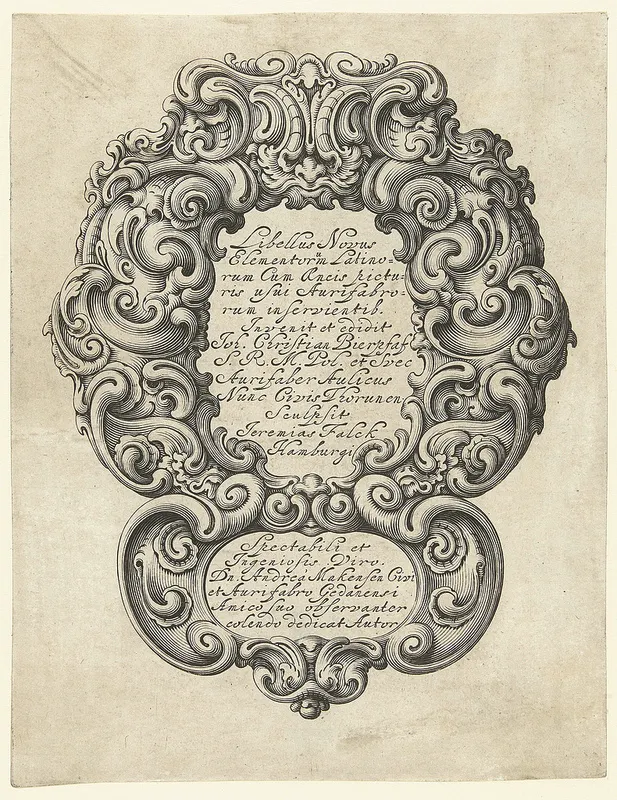 Libellus Novus
Elementorũm Latino=
rum Cum Æneis pictu=
ris usui Aurifabro=
rum inservientib.
Invenit et edidit
Joh. Christian Bierpfaf
S. R. M. Pol. et Svec
Aurifaber Aulicus
Nunc Civis Thorunen
Sculpsit
Jeremias Falck
Hamburgi
Spectabili et
Ingeniosis Viro.
Dn. Andreá Makensen Civi
et Aurifabro Gedanensi
Amico suo observanter
colendo dedicat Autor